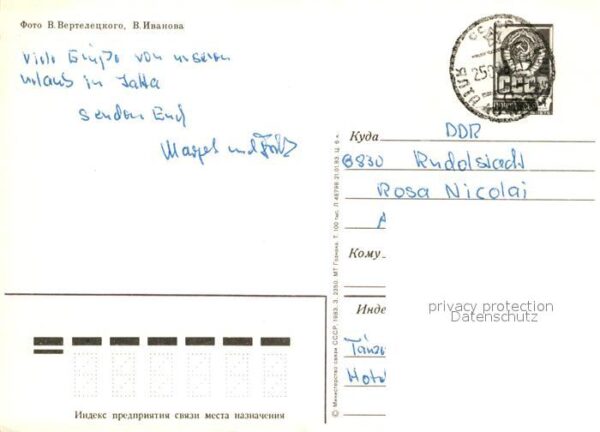 Фото В. Вертелецкого, В. Иванова
Viele Grüße von unserem
Urlaub in Jalta
senden Euch
und
СССР
Куда
DDR
6830 Rudolstadt
Rosa Nicolai
Кому
Инде
privacy protection
Datenschutz
Hote
Индекс предприятия связи места назначения
© Министерство связи СССР, 1983. З. 2350. МТ Гознака. Т. 100 тыс. Л-48796. 21.01.83. Ц. 6 к.